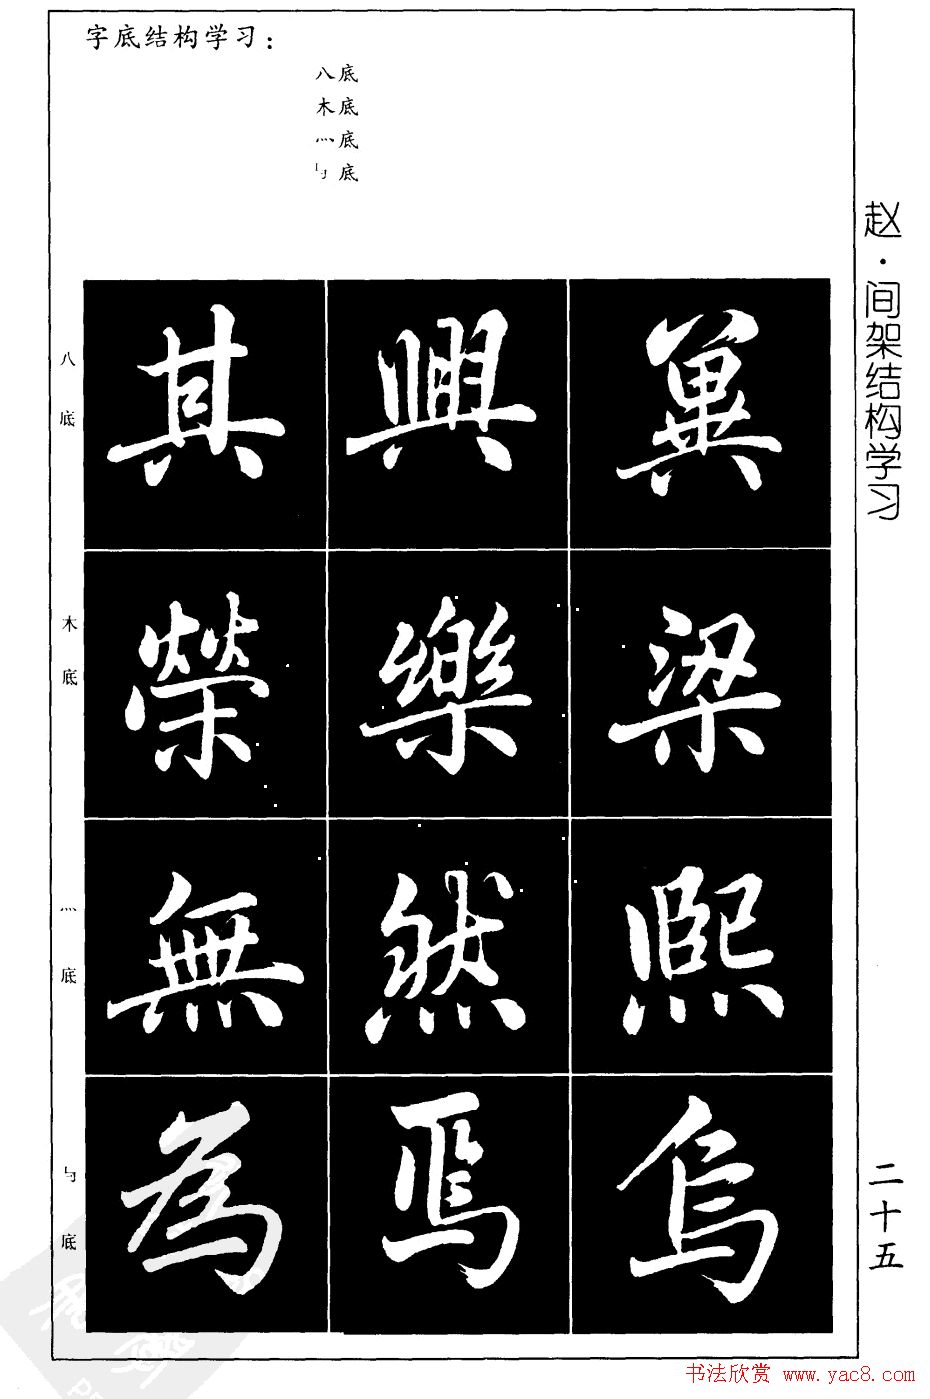 字底结构学习：
八底
木底
灬底
与底
赵·间架结构学习
八底
其興冀
木底
榮樂梁
灬底
無然熙
与底
為焉烏
二十五
书法欣赏 www.yac8.com